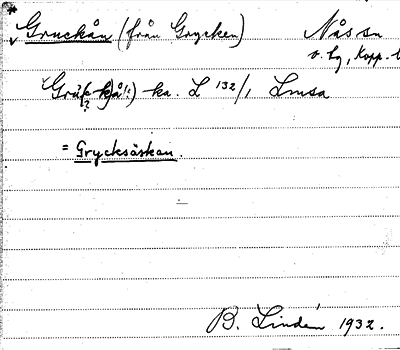 * Gruckån (från Grycken) Nås sn
v. bg, Kopp. l
ka. L 132/1 Lmsa
= Grycksåskan.
B. Lindén 1932.